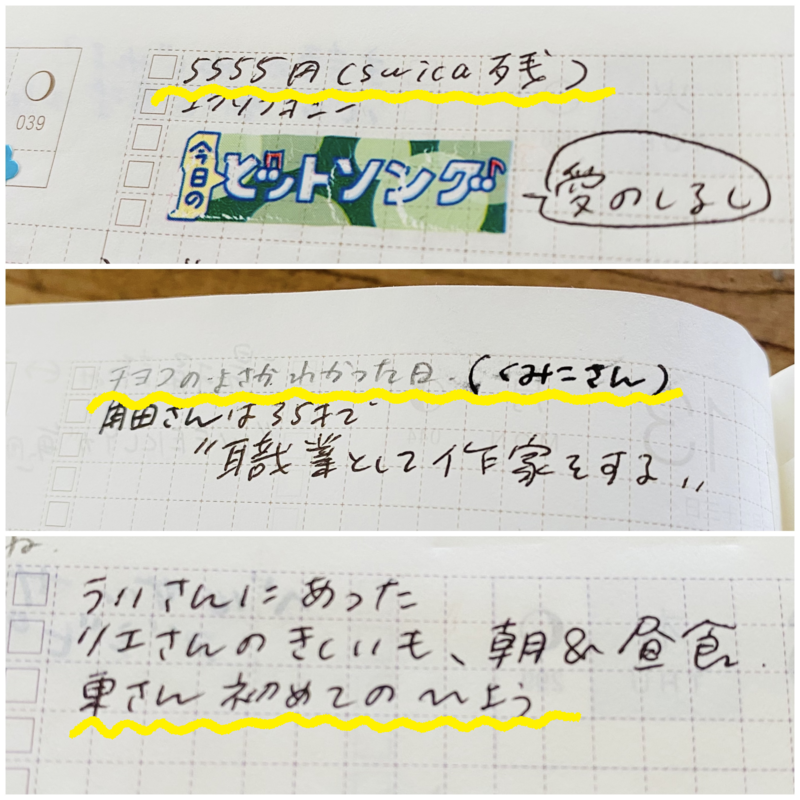 5555円(suica残)
039
今日の
ヒットソング
愛のしるし
チヨコのよさがわかった日.(くみこさん)
角田さんは35才で
〃職業として作家をする〃
ね.
さんにあった
リエさんのきしいも、朝&昼食.
東さん初めての